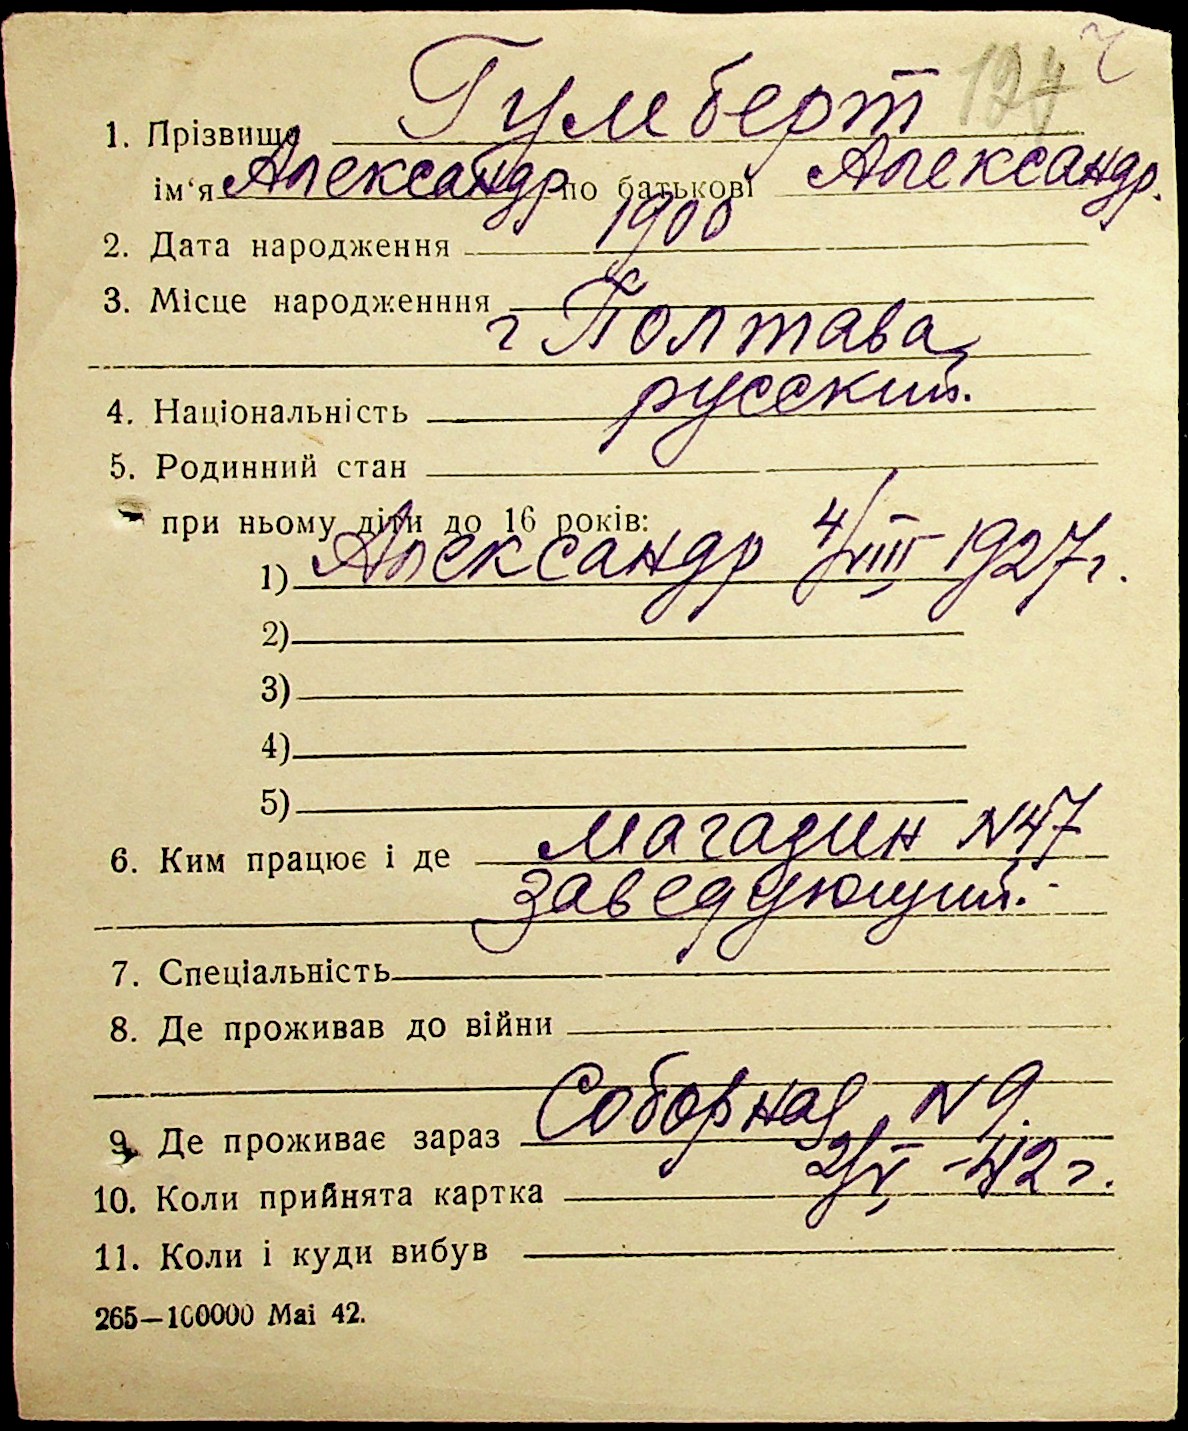 124 ч
1. Прізвище Гумберт
ім‘я Александр по батькові Александр.
2. Дата народження 1900
3. Місце народженння
г Полтава,
4. Національність русский.
5. Родинний стан
при ньому діти до 16 років:
1) Александр 4/VIII 1927 г.
2)
3)
4)
5)
6. Ким працює і де магазин N47
заведующий.
7. Спеціальність
8. Де проживав до війни
9. Де проживає зараз Соборная N 9.
10. Коли прийнята картка 2/V -42 г.
11. Коли і куди вибув
265—100000 Mai 42.